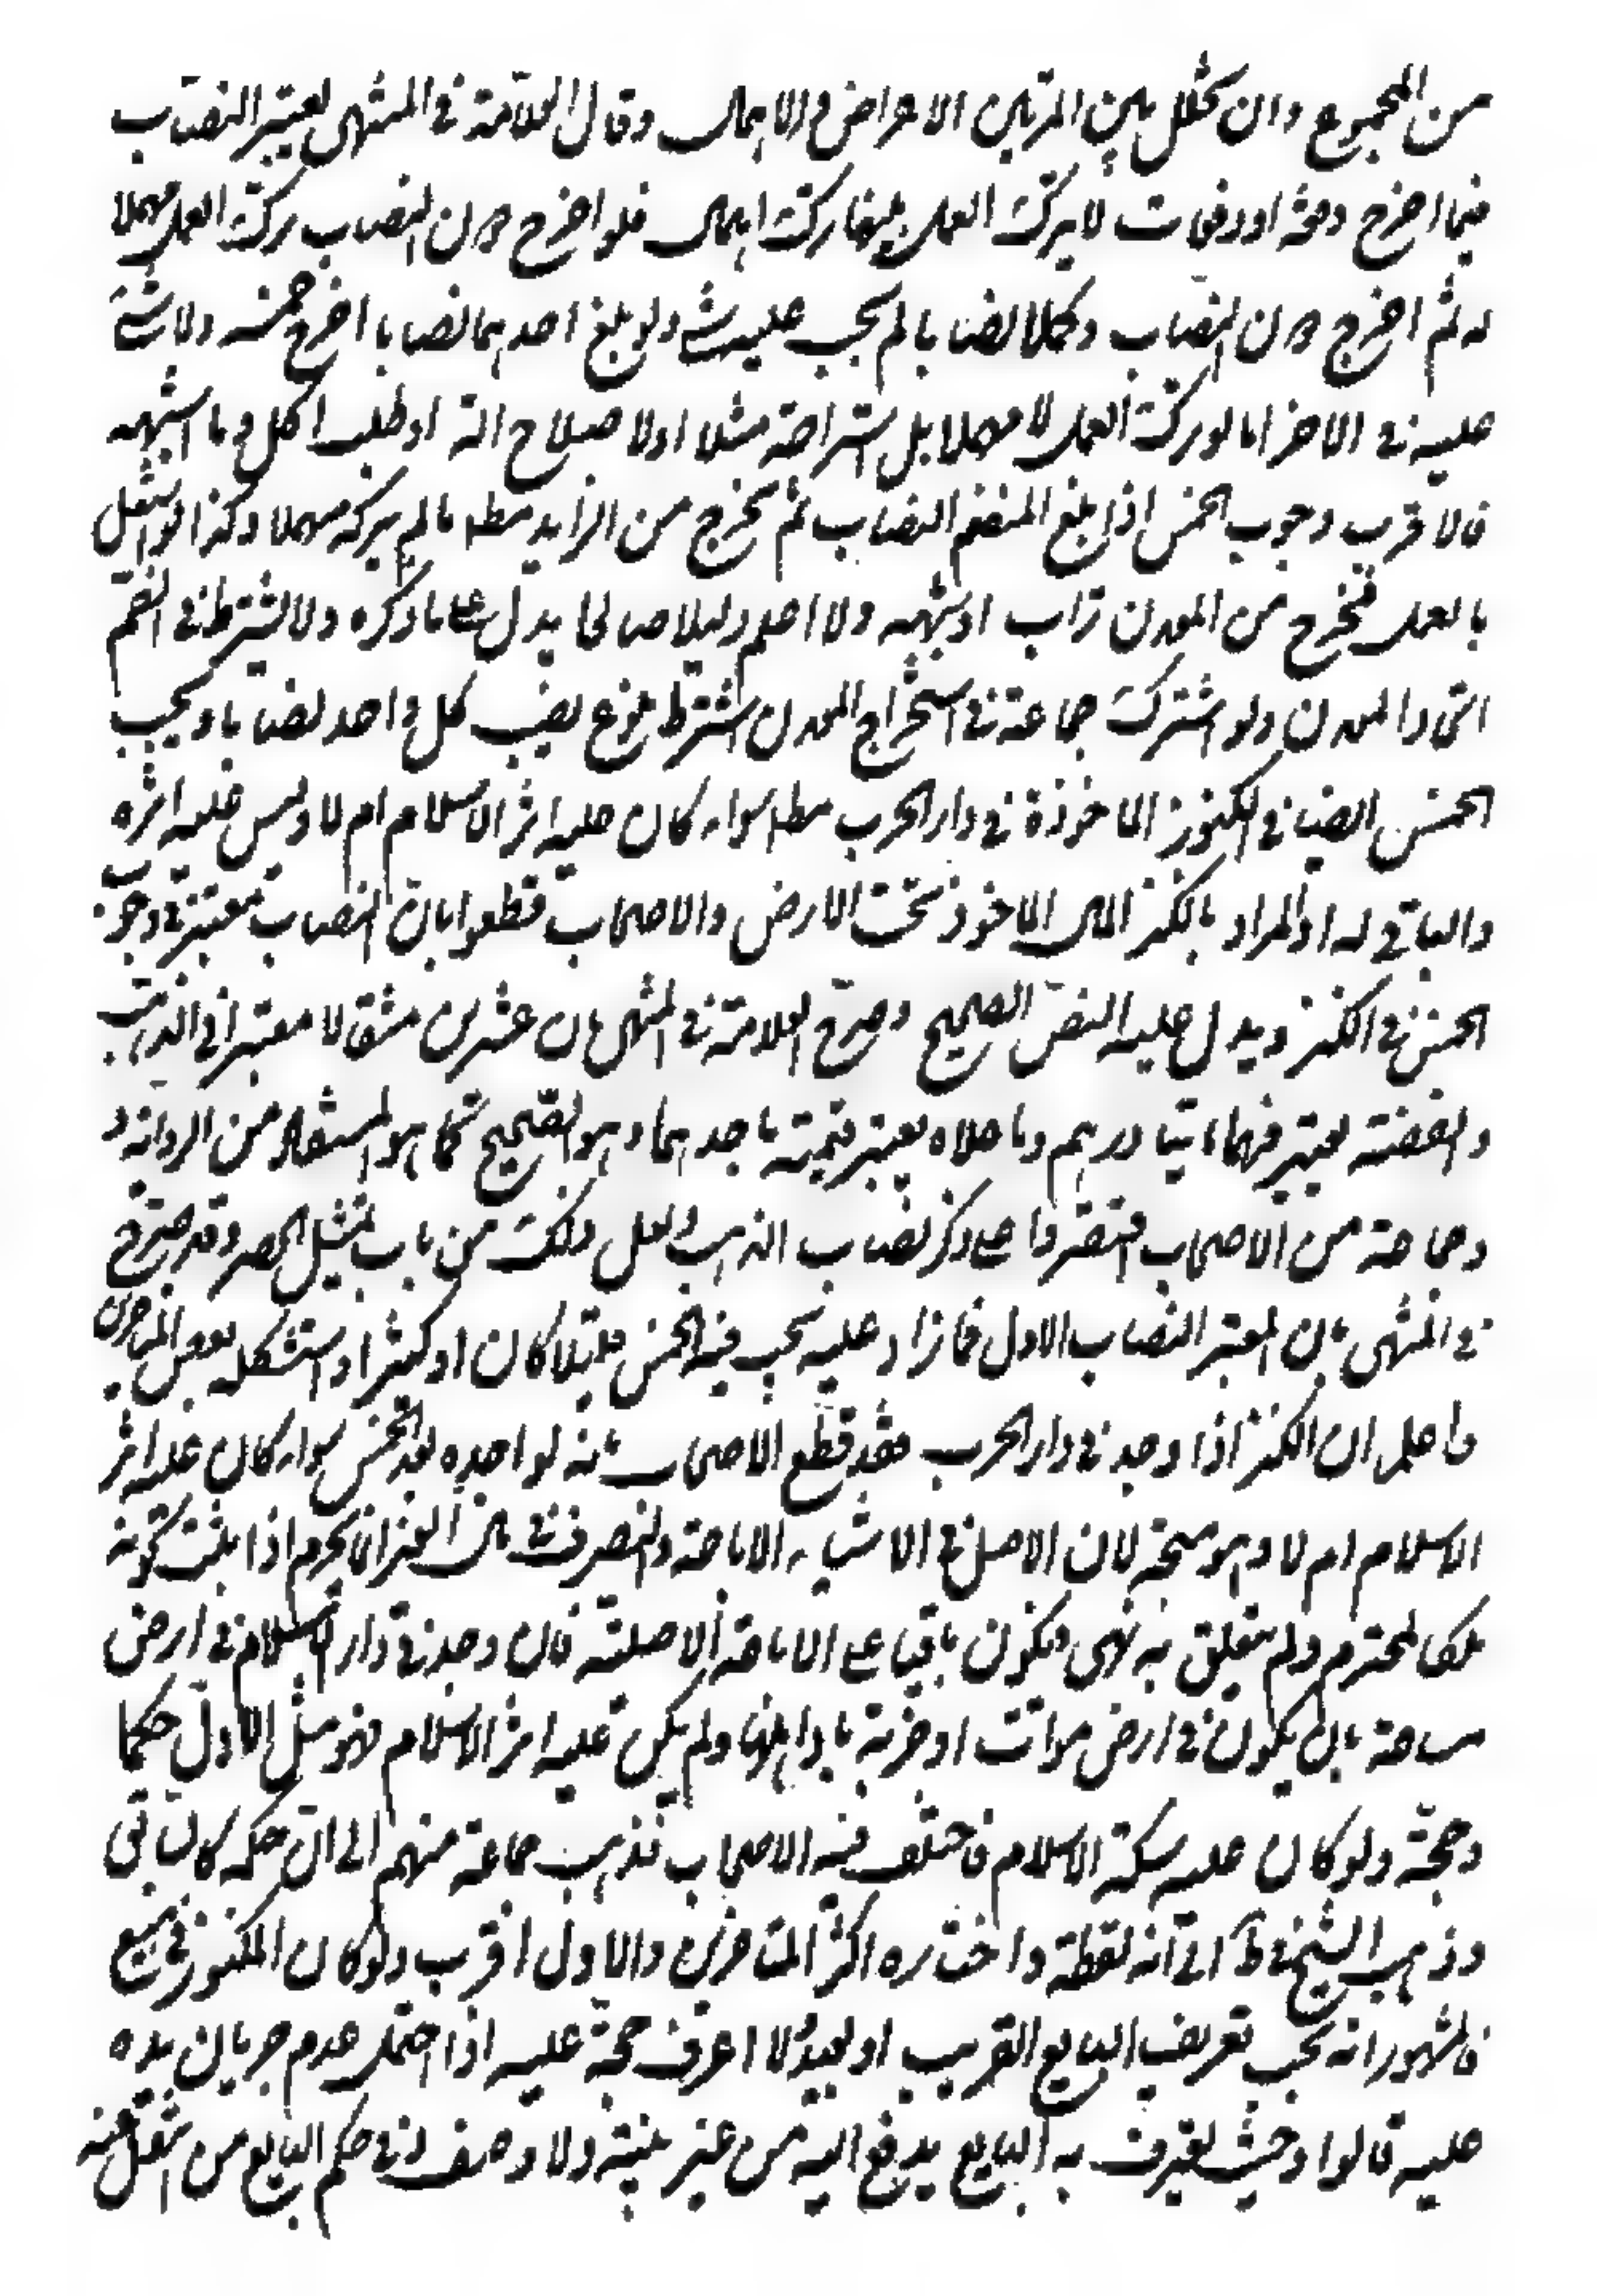 من المجموع وان تخلل بين المرتين الاعراض والاهمال وقال العلامة في المنتهى يعتبر النصاب
فيما اخرج دفعة او دفعات لا يترك العمل بينها ترك اهمال فلو اخرج دون النصاب وترك العمل مهملا
له ثم اخرج دون النصاب وكملا نصابا لم يجب عليه شئ ولو بلغ احدهما نصابا اخرج خمسه ولا شئ
عليه في الاخر اما لو ترك العمل لا مهملا بل استراحة مثلا او لاصلاح الة او طلب اكل وما اشبهه
فالاقرب وجوب الخمس اذا بلغ المنضم النصاب ثم يخرج من الزايد مطلقا ما لم يتركه مهملا وكذا لو اشتغل
بالعمل فخرج من المعدن تراب او شبهه ولا اعلم دليلا صالحا يدل على ما ذكره ولا يشترط في الضم
اتحاد المعدن ولو اشترك جماعة في استخراج المعدن اشترط بلوغ نصيب كل واحد نصابا ويجب
الخمس ايضا في الكنوز الماخوذة في دار الحرب مط سواء كان عليه اثر الاسلام ام لا وليس عليه اثره
والباقي له والمراد بالكنز المال الماخوذ تحت الارض والاصحاب قطعوا بان النصاب معتبر في وجوب
الخمس في الكنز ويدل عليه النص الصحيح وصرح العلامة في المنتهى بان عشرين مثقالا معتبر في الذهب
والفضة يعتبر فيها مائتا درهم وما عداه يعتبر قيمته باحدهما وهو الصحيح كما هو المستفاد من الرواية و
وجماعة من الاصحاب اقتصروا على ذكر نصاب الذهب ولعل ذلك من باب التمثيل لا الحصر وقد صرح
في المنتهى بان المعتبر النصاب الاول فما زاد عليه يجب فيه الخمس قليلا كان او كثيرا واستشكله بعض المتاخرين
واعلم ان الكنز اذا وجد في دار الحرب فقد قطع الاصحاب بانه لواجده بعد الخمس سواء كان عليه اثر
الاسلام ام لا وهو متجه لان الاصل في الاشياء الاباحة والتصرف في مال الغير انما يحرم اذا ثبت كونه
ملكا لمحترم ولم يتعلق به نهي فيكون باقيا على الاباحة الاصلية فان وجد في دار الاسلام في ارض
مباحة بان يكون في ارض موات او خربة باد اهلها ولم يكن عليه اثر الاسلام فهو مثل الاول حكما
وحجة ولو كان عليه سكة الاسلام فاختلف فيه الاصحاب فذهب جماعة منهم الى ان حكمه كالسابق
وذهب الشيخ في ط الى انه لقطة واختاره اكثر المتاخرين والاول اقرب ولو كان المكنوز في مبيع
فالمشهور انه يجب تعريف البايع القريب او البعيد ولا اعرف حجة عليه اذا احتمل عدم جريان يده
عليه قالوا وحيث يعترف به البايع يدفع اليه من غير بينة ولا وصف وفي حكم البايع من انتقل عنه